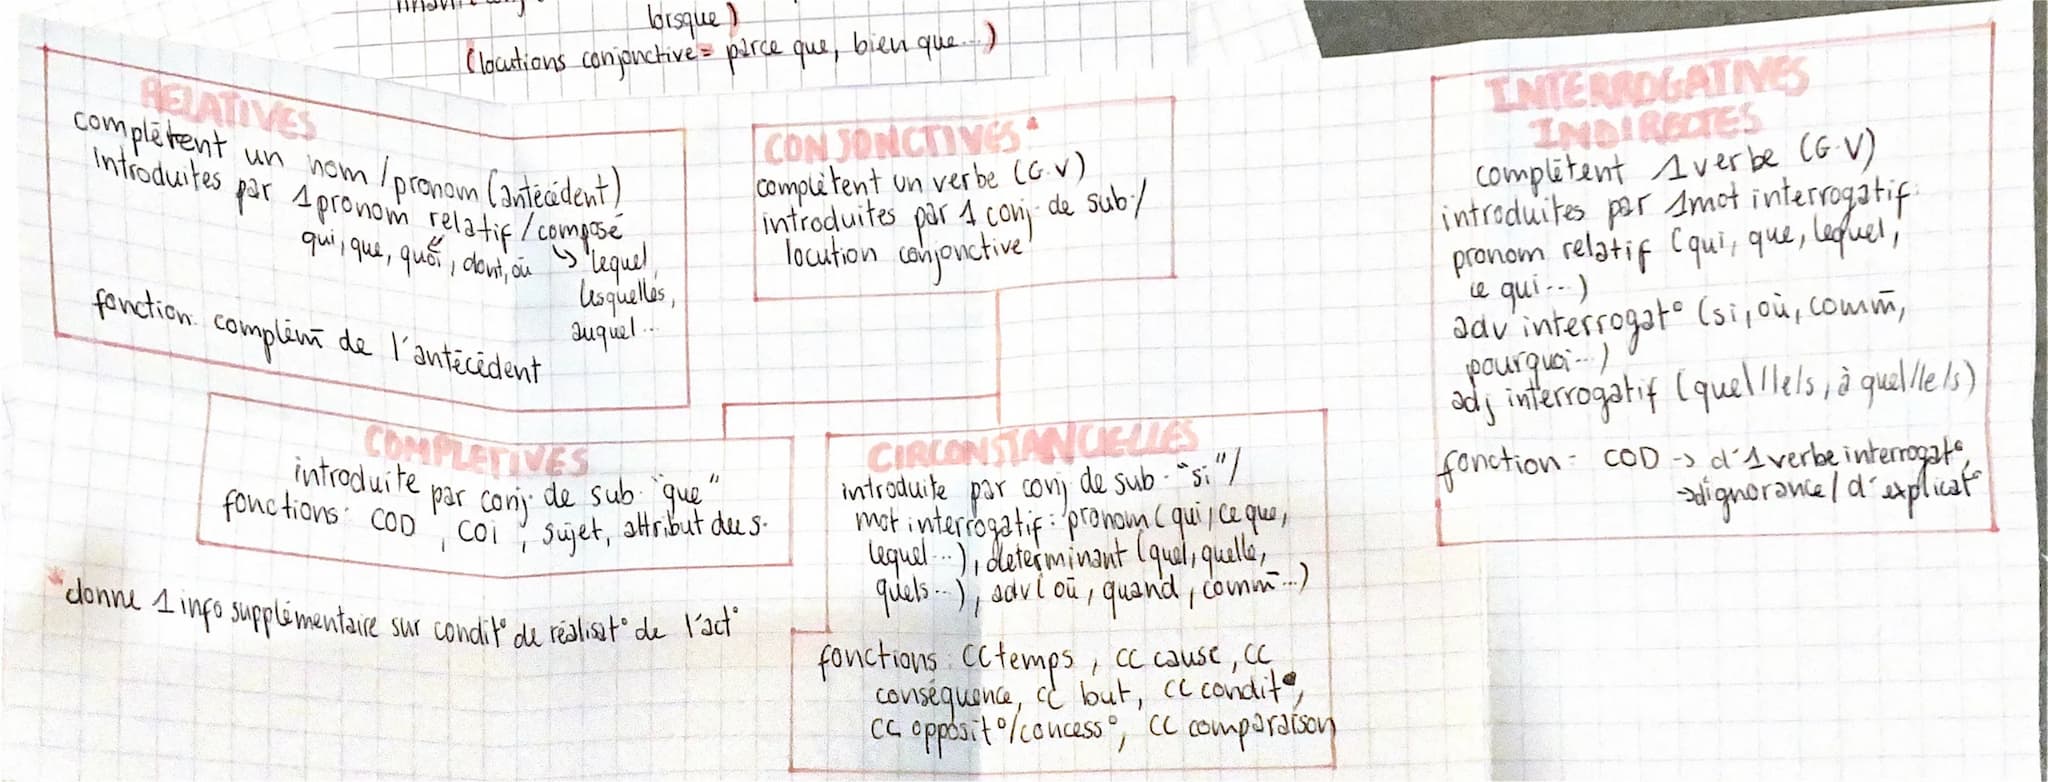 lorsque)
(locutions conjonctive = parce que, bien que...)
RELATIVES
complètent un nom / pronom (antécédent)
introduites par 1 pronom relatif / composé
qui, que, quoi, dont, où
↳ lequel,
lesquelles,
auquel...
fonction: complém̄ de l'antécédent
CONJONCTIVES*
complètent un verbe (G.V)
introduites par 1 conj. de sub./
locution conjonctive
INTERROGATIVES
INDIRECTES
complètent 1 verbe (G.V)
introduites par 1 mot interrogatif:
pronom relatif (qui, que, lequel,
ce qui...)
adv interrogat° (si, où, comm̄,
pourquoi...)
adj interrogatif (quel/le/s, à quel/le/s)
fonction: COD → d'1 verbe interrogat°,
→ d'ignorance / d'explicat°
COMPLETIVES
introduite par conj. de sub. "que"
fonctions: COD, COI, sujet, attribut du s.
CIRCONSTANCIELLES
introduite par conj de sub. "si"/
mot interrogatif: pronom (qui, ce que,
lequel...), determinant (quel, quelle,
quels...), adv (où, quand, comm̄...)
fonctions: CC temps, CC cause, CC
conséquence, CC but, CC condit°,
CC opposit°/concess°, CC comparaison
*donne 1 info supplémentaire sur condit° de réalisat° de l'act°